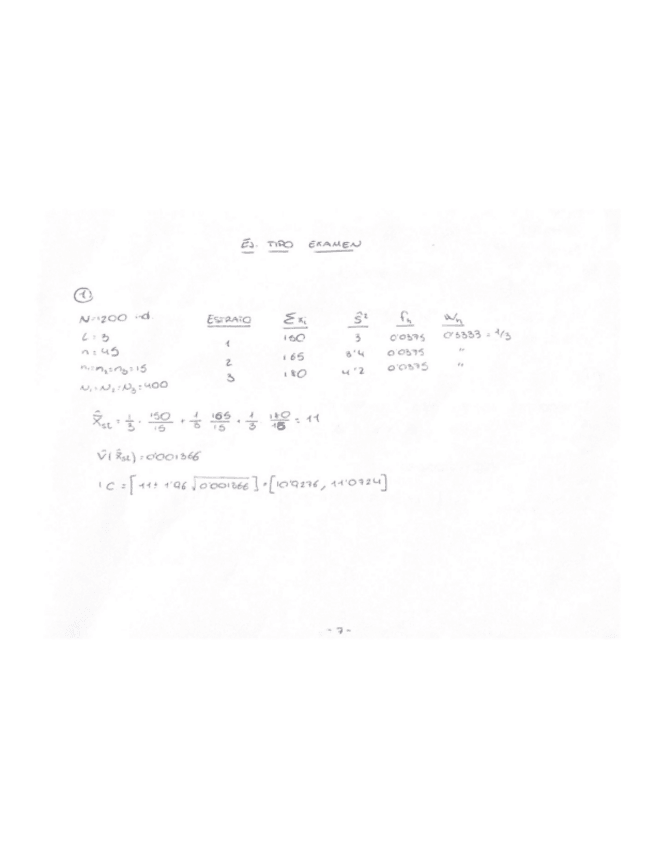 EJ. TIPO EXAMEN
①
N=1200 ud.
L=3
n=45
n₁=n₂=n₃=15
N₁=N₂=N₃=400
ESTRATO Σxᵢ ŝ² fₕ wₕ
1 150 3 0'0375 0'3333=1/3
2 165 3'4 0'0375 "
3 180 4'2 0'0375 "
x̂̄st = 1/3 · 150/15 + 1/3 · 165/15 + 1/3 · 180/15 = 11
V̂(x̂̄st)=0'001366
IC=[11± 1'96 √0'001366]=[10'9276, 11'0724]
- 7 -